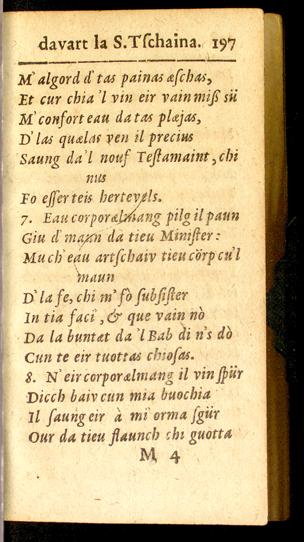 davart la S. Tſchaina. 197
M'algord d'tas painas æſchas,
Et cur chia'l vin eir vain miß sü
M'confort eau da tas plæjas,
D'las quælas ven il precius
Saung da'l nouf Teſtamaint, chi
nus
Fo eſſer teis hertevels.
7. Eau corporælmang pilg il paun
Giu d'maun da tieu Miniſter:
Much'eau artſchaiv tieu cörp cu'l
maun
D'la fe, chi m'fò ſubſiſter
In tia faci', & que vain nò
Da la buntæt da'l Bab di n's dò
Cun te eir tuottas chioſas.
8. N'eir corporælmang il vin ſpür
Dicch baiv cun mia buochia
Il ſaung eir à mi'orma ſgür
Our da tieu flaunch chi guotta
M 4